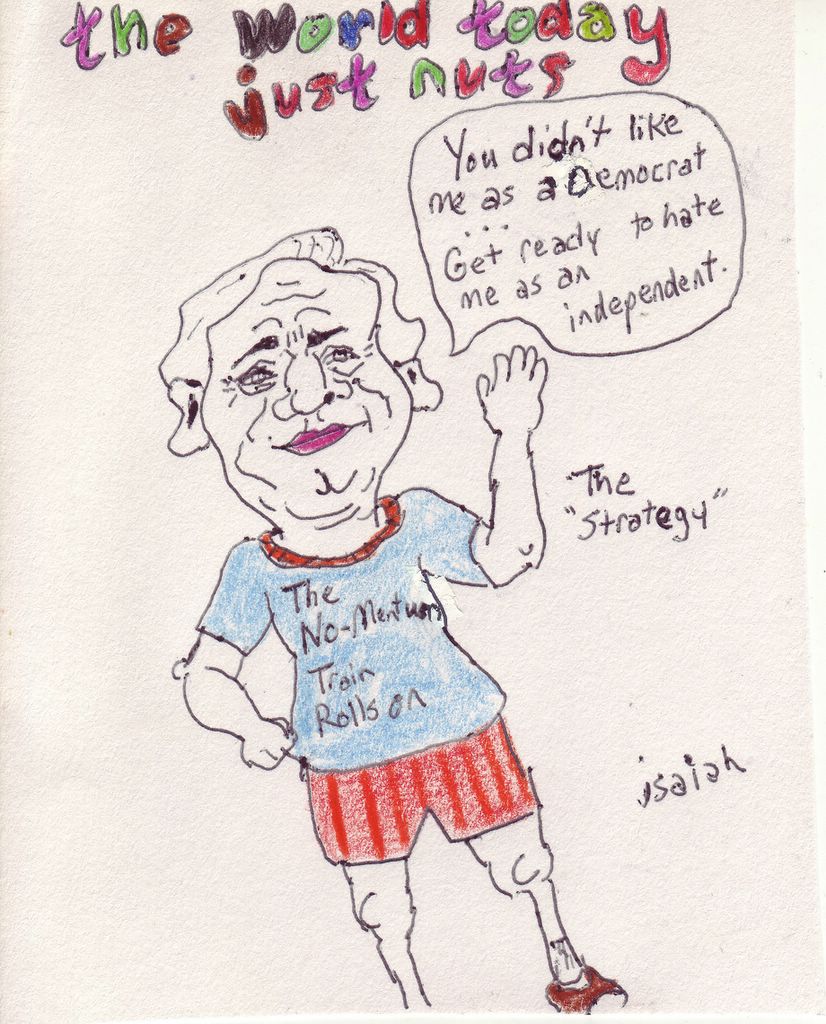 the world today
just nuts
You didn't like
me as a Democrat
...
Get ready to hate
me as an
independent.
"The
"Strategy"
The
No-Mentum
Train
Rolls on
isaiah